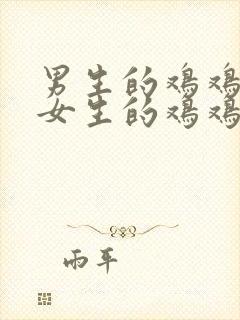 男生的鸡鸡
女生的鸡鸡
雨平